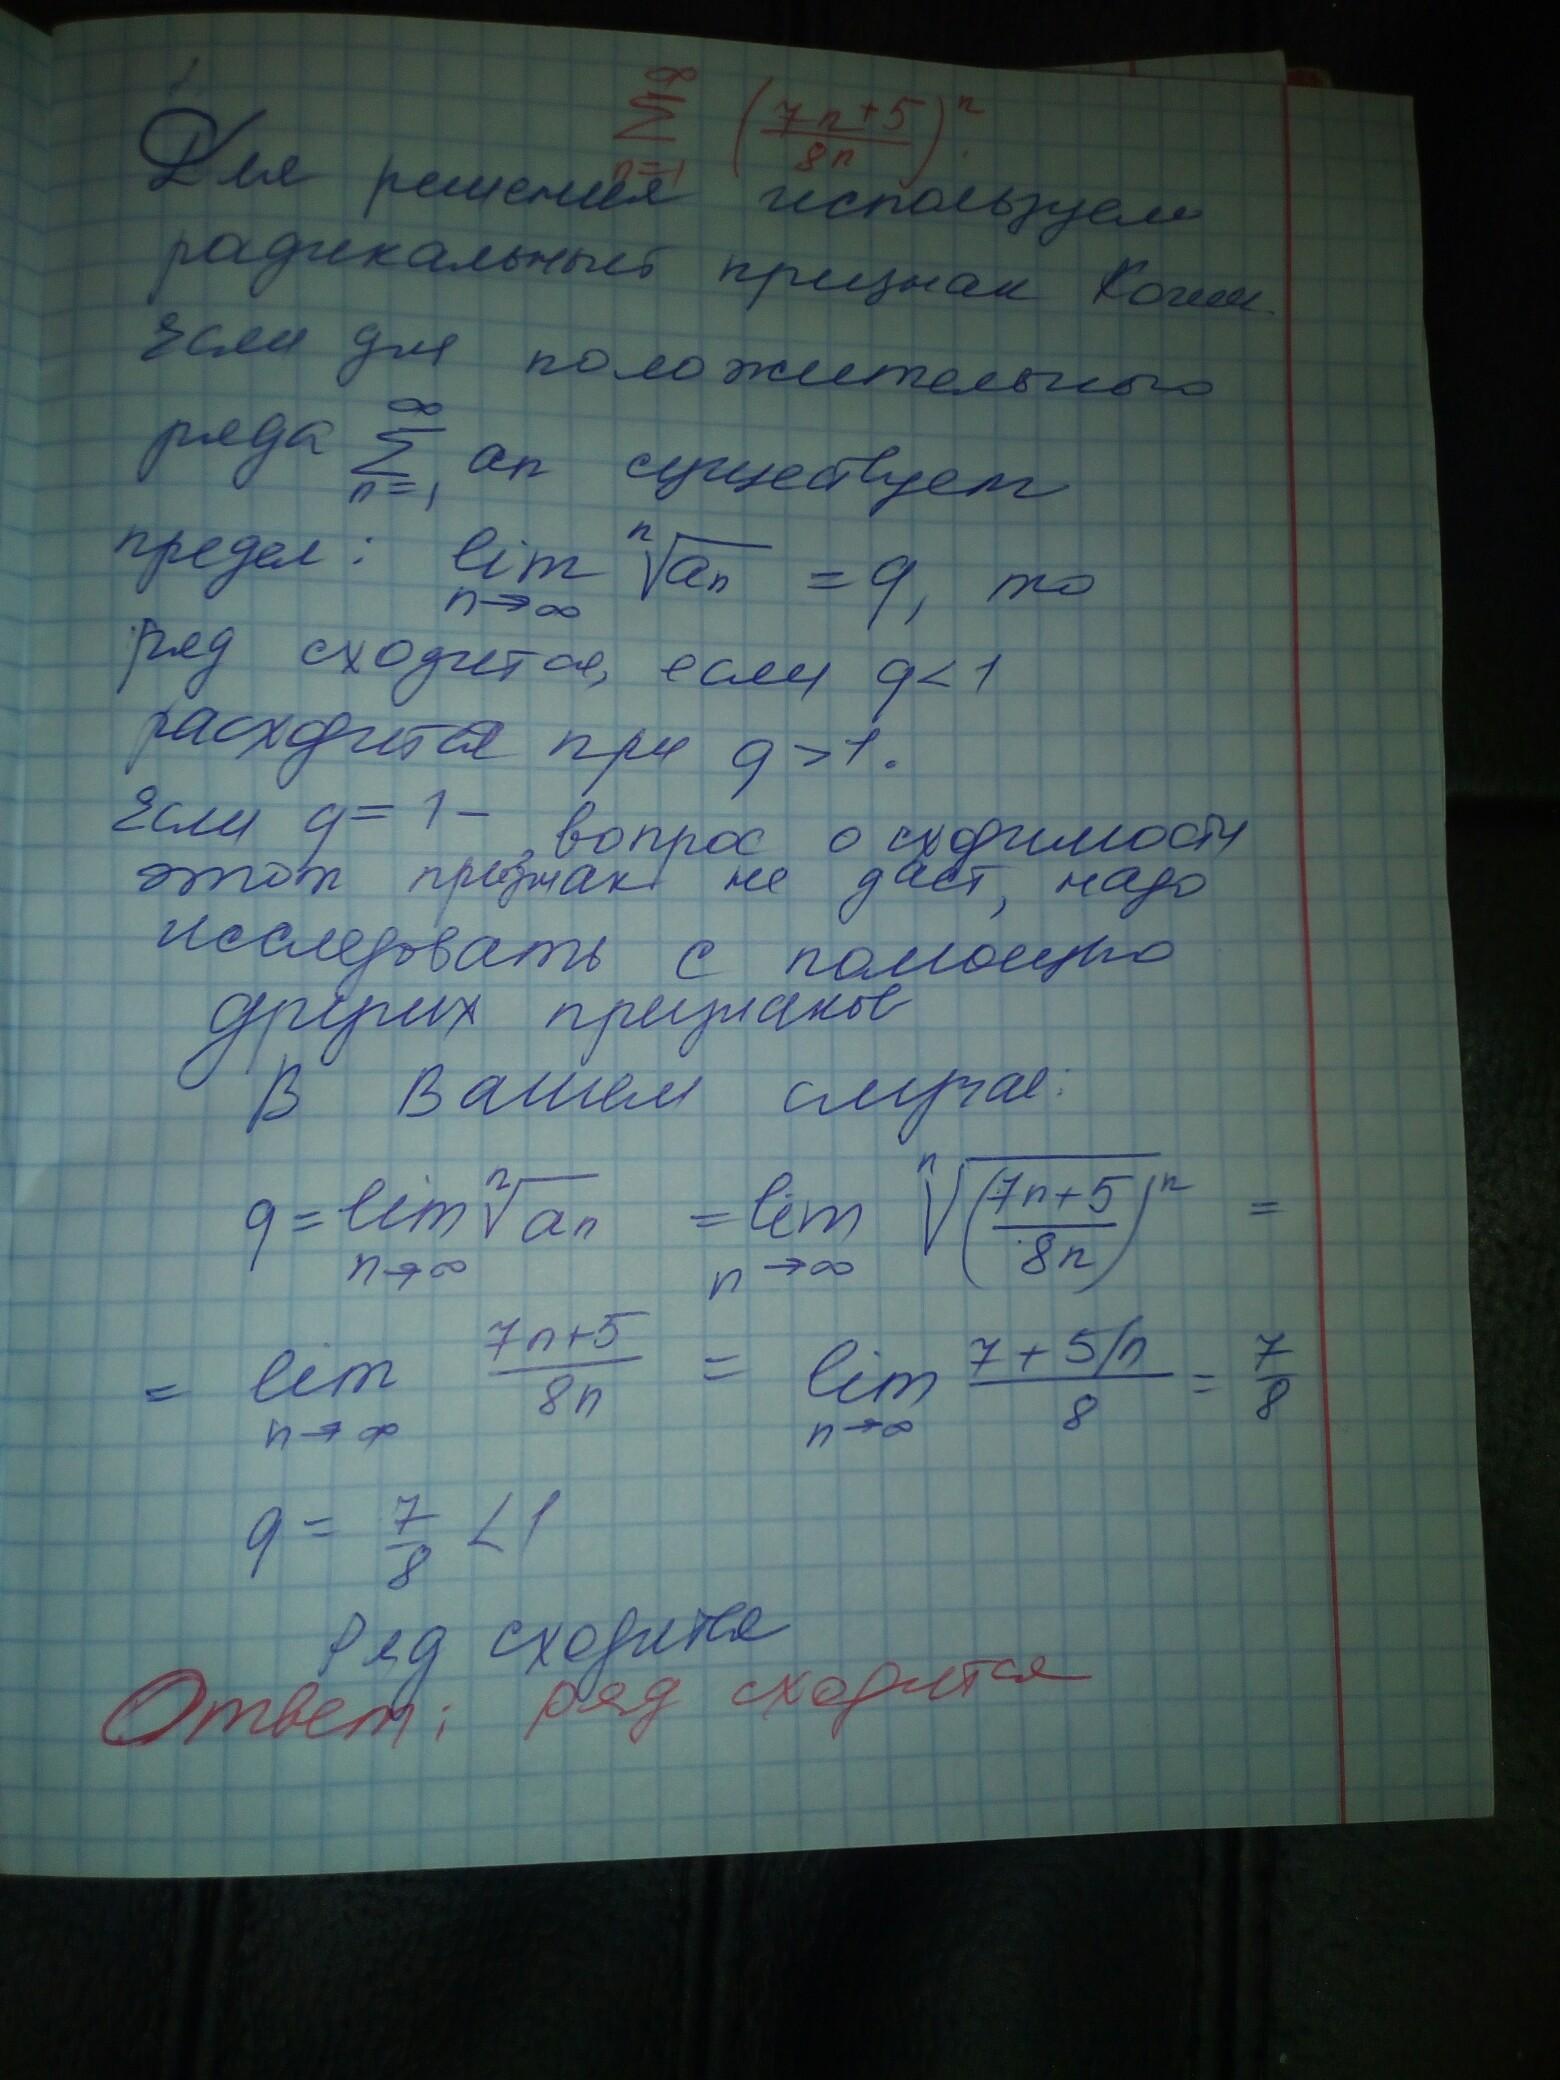 ∑_{n=1}^{∞} ((7n+5)/(8n))^n.
Для решения используем
радикальный признак Коши.
Если для положительного
ряда ∑_{n=1}^{∞} an существует
предел: lim_{n→∞} ⁿ√an = q, то
ряд сходится, если q<1
расходится при q>1.
Если q=1 – вопрос о сходимости
этот признак не даст, надо
исследовать с помощью
других признаков
В Вашем случае:
q = lim_{n→∞} ⁿ√an = lim_{n→∞} ⁿ√((7n+5)/(8n))^n =
= lim_{n→∞} (7n+5)/(8n) = lim_{n→∞} (7+5/n)/8 = 7/8
q = 7/8 <1
Ряд сходится
Ответ: ряд сходится